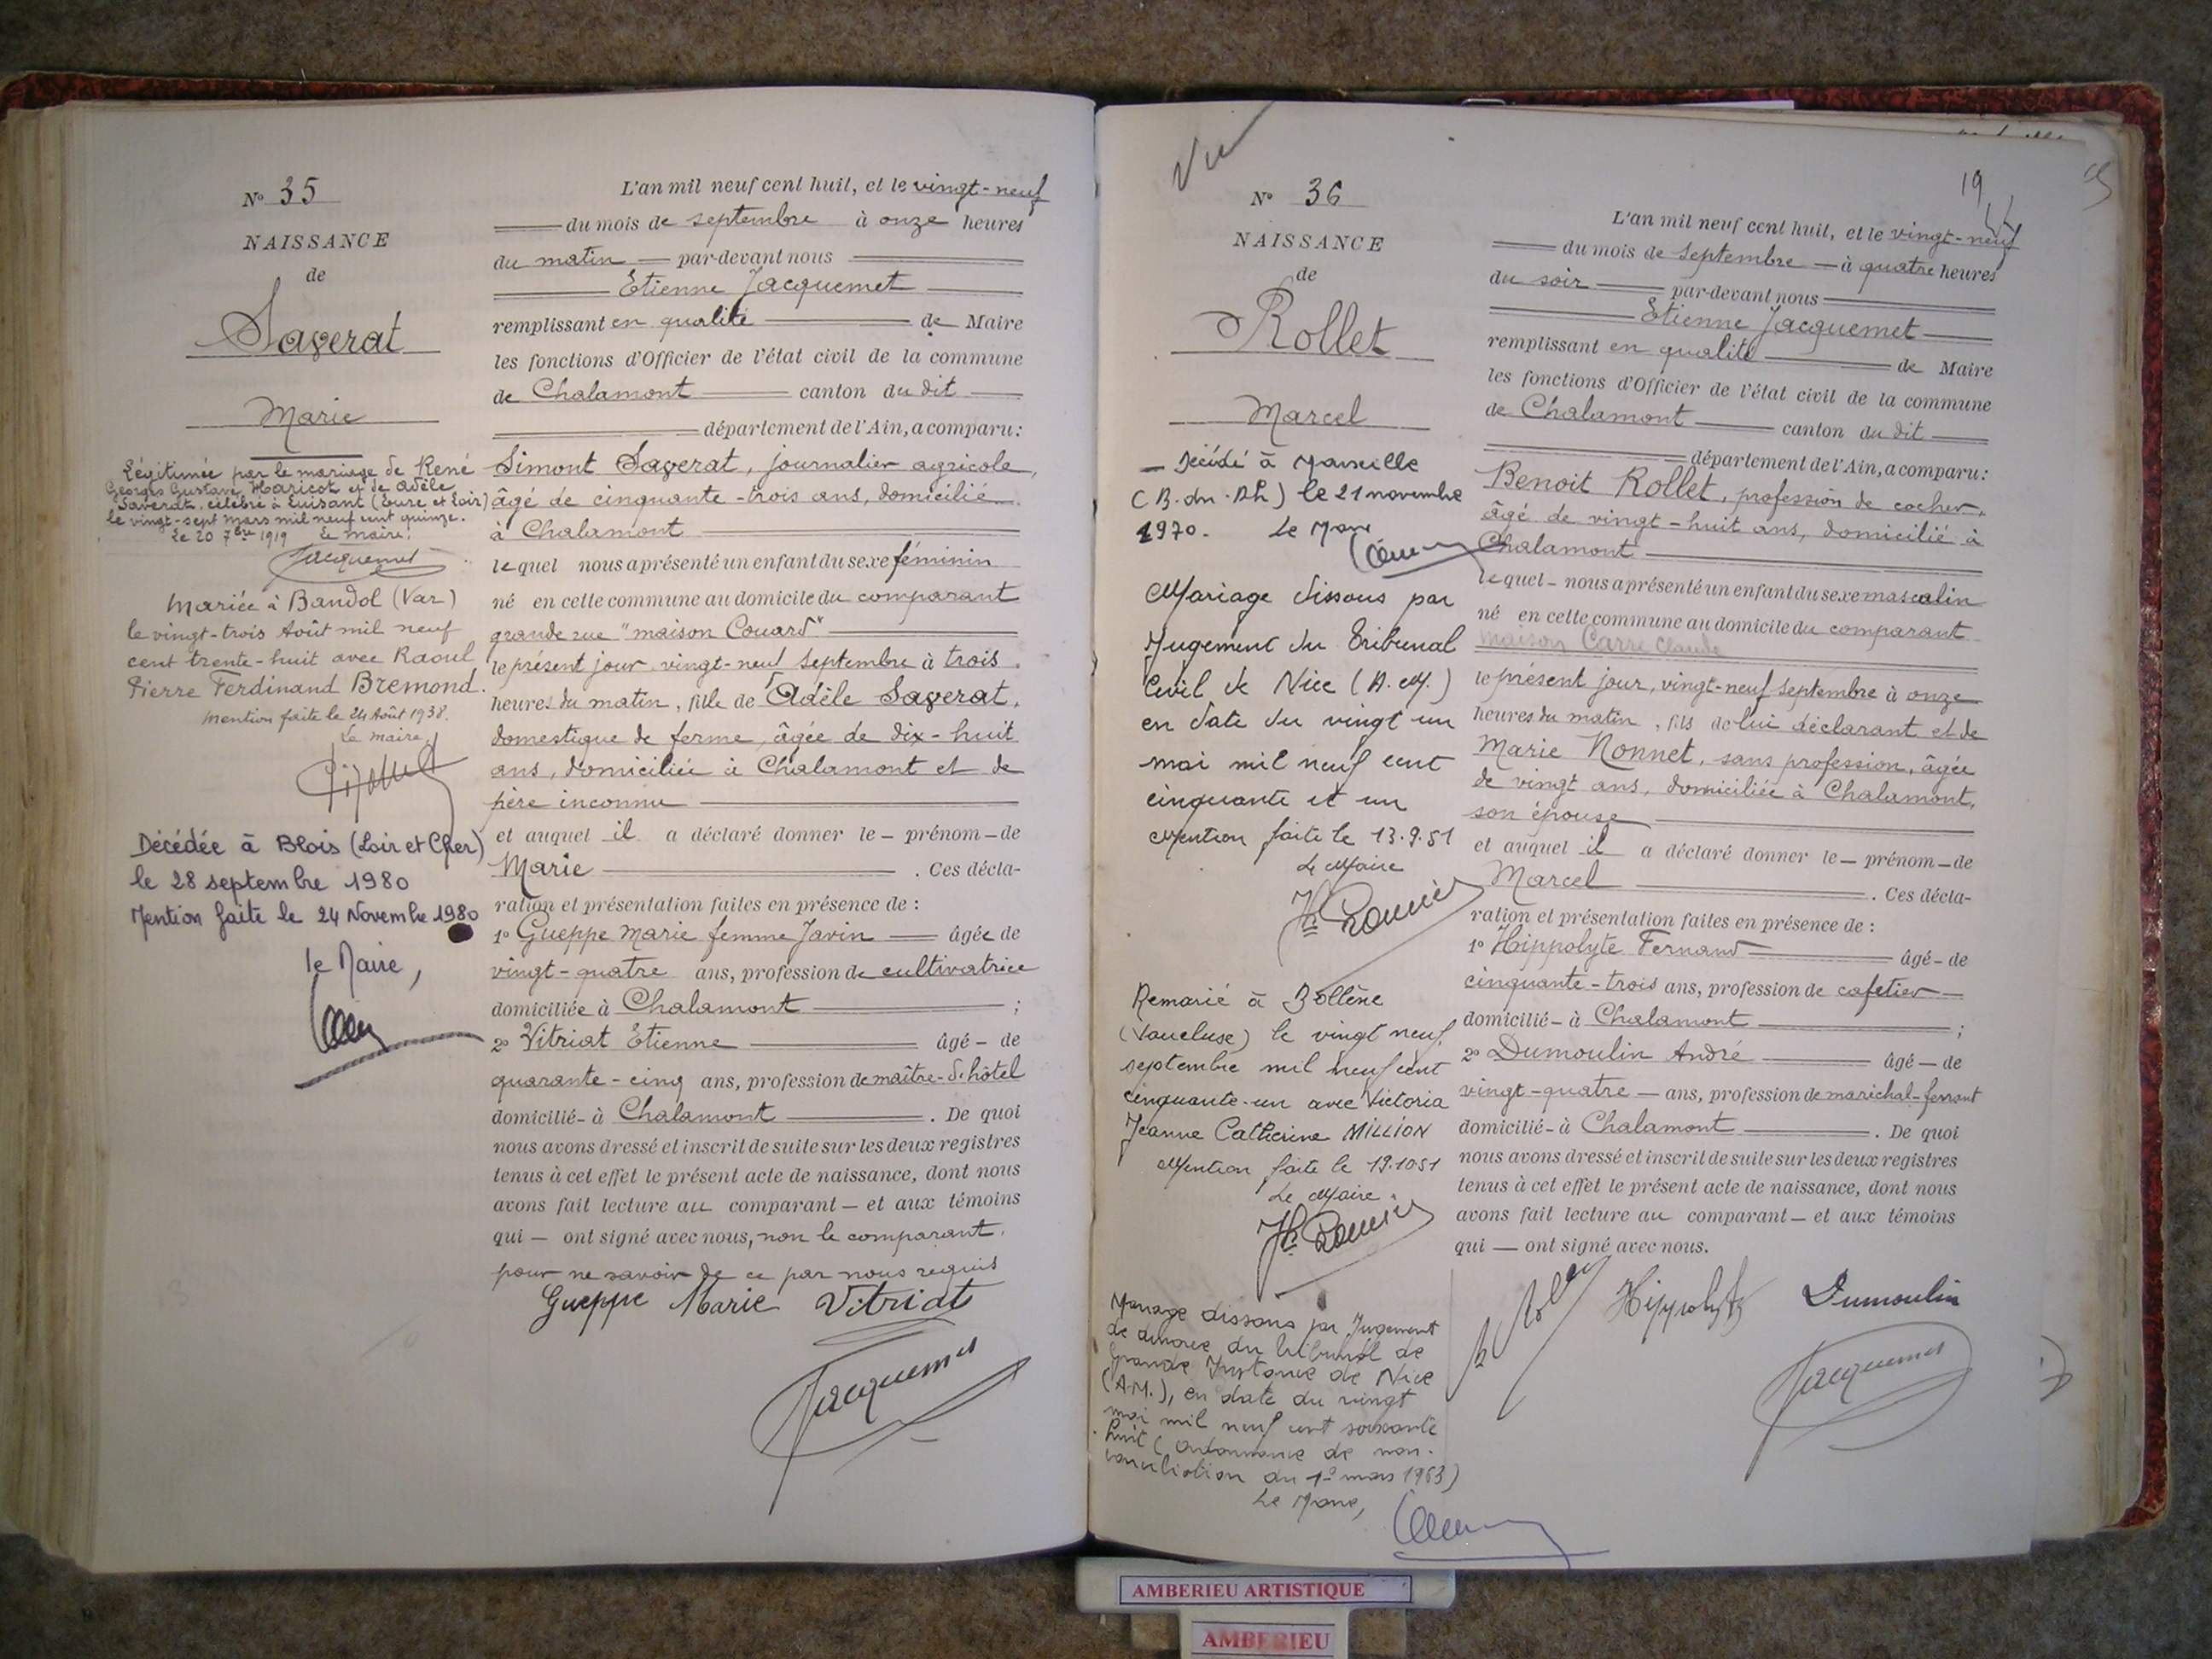 N° 35
NAISSANCE
de
Saverat
Marie
Légitimée par le mariage de René
Georges Gustave Haricot et de Adèle
Saverat, célébré à Luisant (Eure et Loir)
le vingt-sept mars mil neuf cent quinze.
Le 20 7bre 1919 Le maire:
Jacquemet
Mariée à Bandol (Var)
le vingt-trois Août mil neuf
cent trente-huit avec Raoul
Pierre Ferdinand Bremond.
Mention faite le 24 Août 1938.
Le maire,
Décédée à Blois (Loir et Cher)
le 28 septembre 1980
Mention faite le 24 Novembre 1980
le Maire,
L'an mil neuf cent huit, et le vingt-neuf
du mois de septembre à onze heures
du matin par-devant nous
Etienne Jacquemet
remplissant en qualité de Maire
les fonctions d'Officier de l'état civil de la commune
de Chalamont canton du dit
département de l'Ain, a comparu:
Simont Saverat, journalier agricole,
âgé de cinquante-trois ans, domicilié
à Chalamont
lequel nous a présenté un enfant du sexe féminin
né en cette commune au domicile du comparant
grande rue "maison Couard"
le présent jour, vingt-neuf septembre à trois
heures du matin, fille de Adèle Saverat,
domestique de ferme, âgée de dix-huit
ans, domiciliée à Chalamont et de
père inconnu
et auquel il a déclaré donner le prénom de
Marie . Ces décla-
ration et présentation faites en présence de :
1° Gueppe Marie femme Javin âgée de
vingt-quatre ans, profession de cultivatrice
domiciliée à Chalamont ;
2° Vitriat Etienne âgé de
quarante-cinq ans, profession de maître-d'hôtel
domicilié à Chalamont . De quoi
nous avons dressé et inscrit de suite sur les deux registres
tenus à cet effet le présent acte de naissance, dont nous
avons fait lecture au comparant et aux témoins
qui ont signé avec nous, non le comparant,
pour ne savoir de ce par nous requis
Gueppe Marie Vitriat
Jacquemet
Vu
N° 36
NAISSANCE
de
Rollet
Marcel
Décédé à Marseille
(B.du.Rh) le 21 novembre
1970. Le Maire
Mariage dissous par
Jugement du Tribunal
Civil de Nice (A.M.)
en date du vingt un
mai mil neuf cent
cinquante et un
Mention faite le 13.9.51
Le Maire
Remarié à Bollène
(Vaucluse) le vingt neuf
septembre mil neuf cent
cinquante-un avec Victoria
Jeanne Catherine MILLION
Mention faite le 19.10 51
Le Maire.
Mariage dissous par Jugement
de divorce du tribunal de
Grande Instance de Nice
(A.M.), en date du vingt
mai mil neuf cent soixante
huit (ordonnance de non-
conciliation du 1er mars 1963)
Le Maire,
19
L'an mil neuf cent huit, et le vingt-neuf
du mois de septembre à quatre heures
du soir par-devant nous
Etienne Jacquemet
remplissant en qualité de Maire
les fonctions d'Officier de l'état civil de la commune
de Chalamont canton du dit
département de l'Ain, a comparu:
Benoit Rollet, profession de cocher,
âgé de vingt-huit ans, domicilié à
Chalamont
lequel nous a présenté un enfant du sexe masculin
né en cette commune au domicile du comparant
maison Carre Claude
le présent jour, vingt-neuf septembre à onze
heures du matin, fils de lui déclarant et de
Marie Nonnet, sans profession, âgée
de vingt ans, domiciliée à Chalamont,
son épouse
et auquel il a déclaré donner le prénom de
Marcel . Ces décla-
ration et présentation faites en présence de :
1° Hippolyte Fernand âgé de
cinquante-trois ans, profession de cafetier
domicilié à Chalamont ;
2° Dumoulin André âgé de
vingt-quatre ans, profession de maréchal-ferrant
domicilié à Chalamont . De quoi
nous avons dressé et inscrit de suite sur les deux registres
tenus à cet effet le présent acte de naissance, dont nous
avons fait lecture au comparant et aux témoins
qui ont signé avec nous.
Hippolyte Dumoulin
Jacquemet
AMBERIEU ARTISTIQUE
AMBERIEU